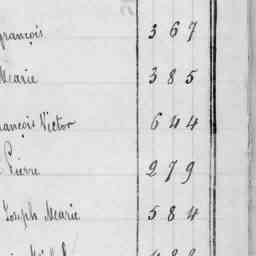 françois 367
Marie 385
françois Victor 644
Pierre 279
Joseph Marie 584